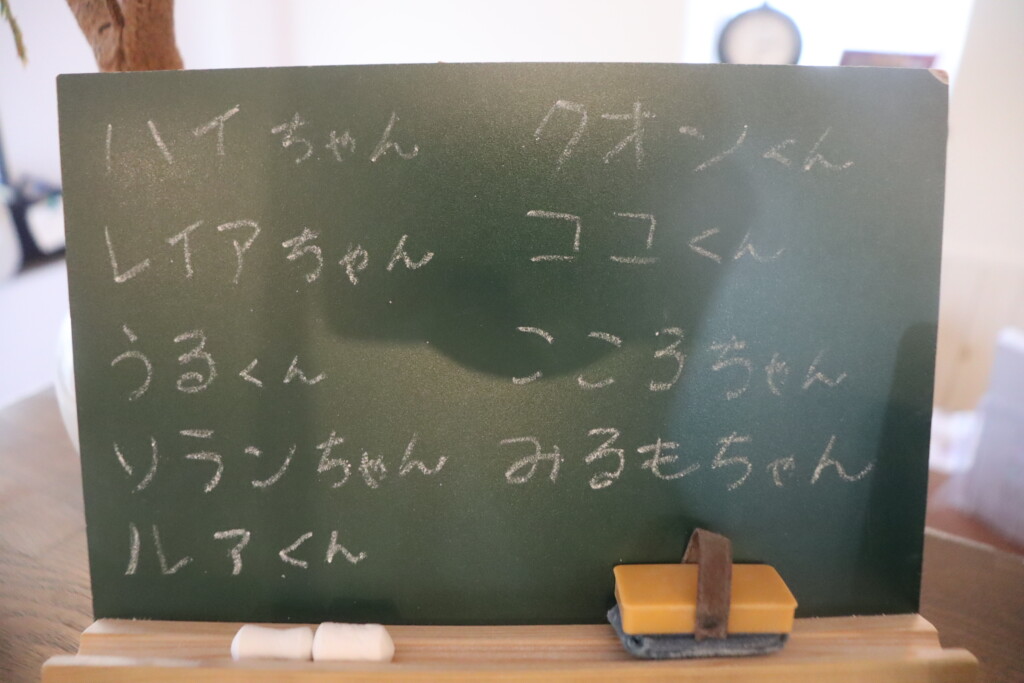 ハイちゃん クオンくん
レイアちゃん ココくん
うるくん こころちゃん
ソランちゃん みるもちゃん
ルアくん